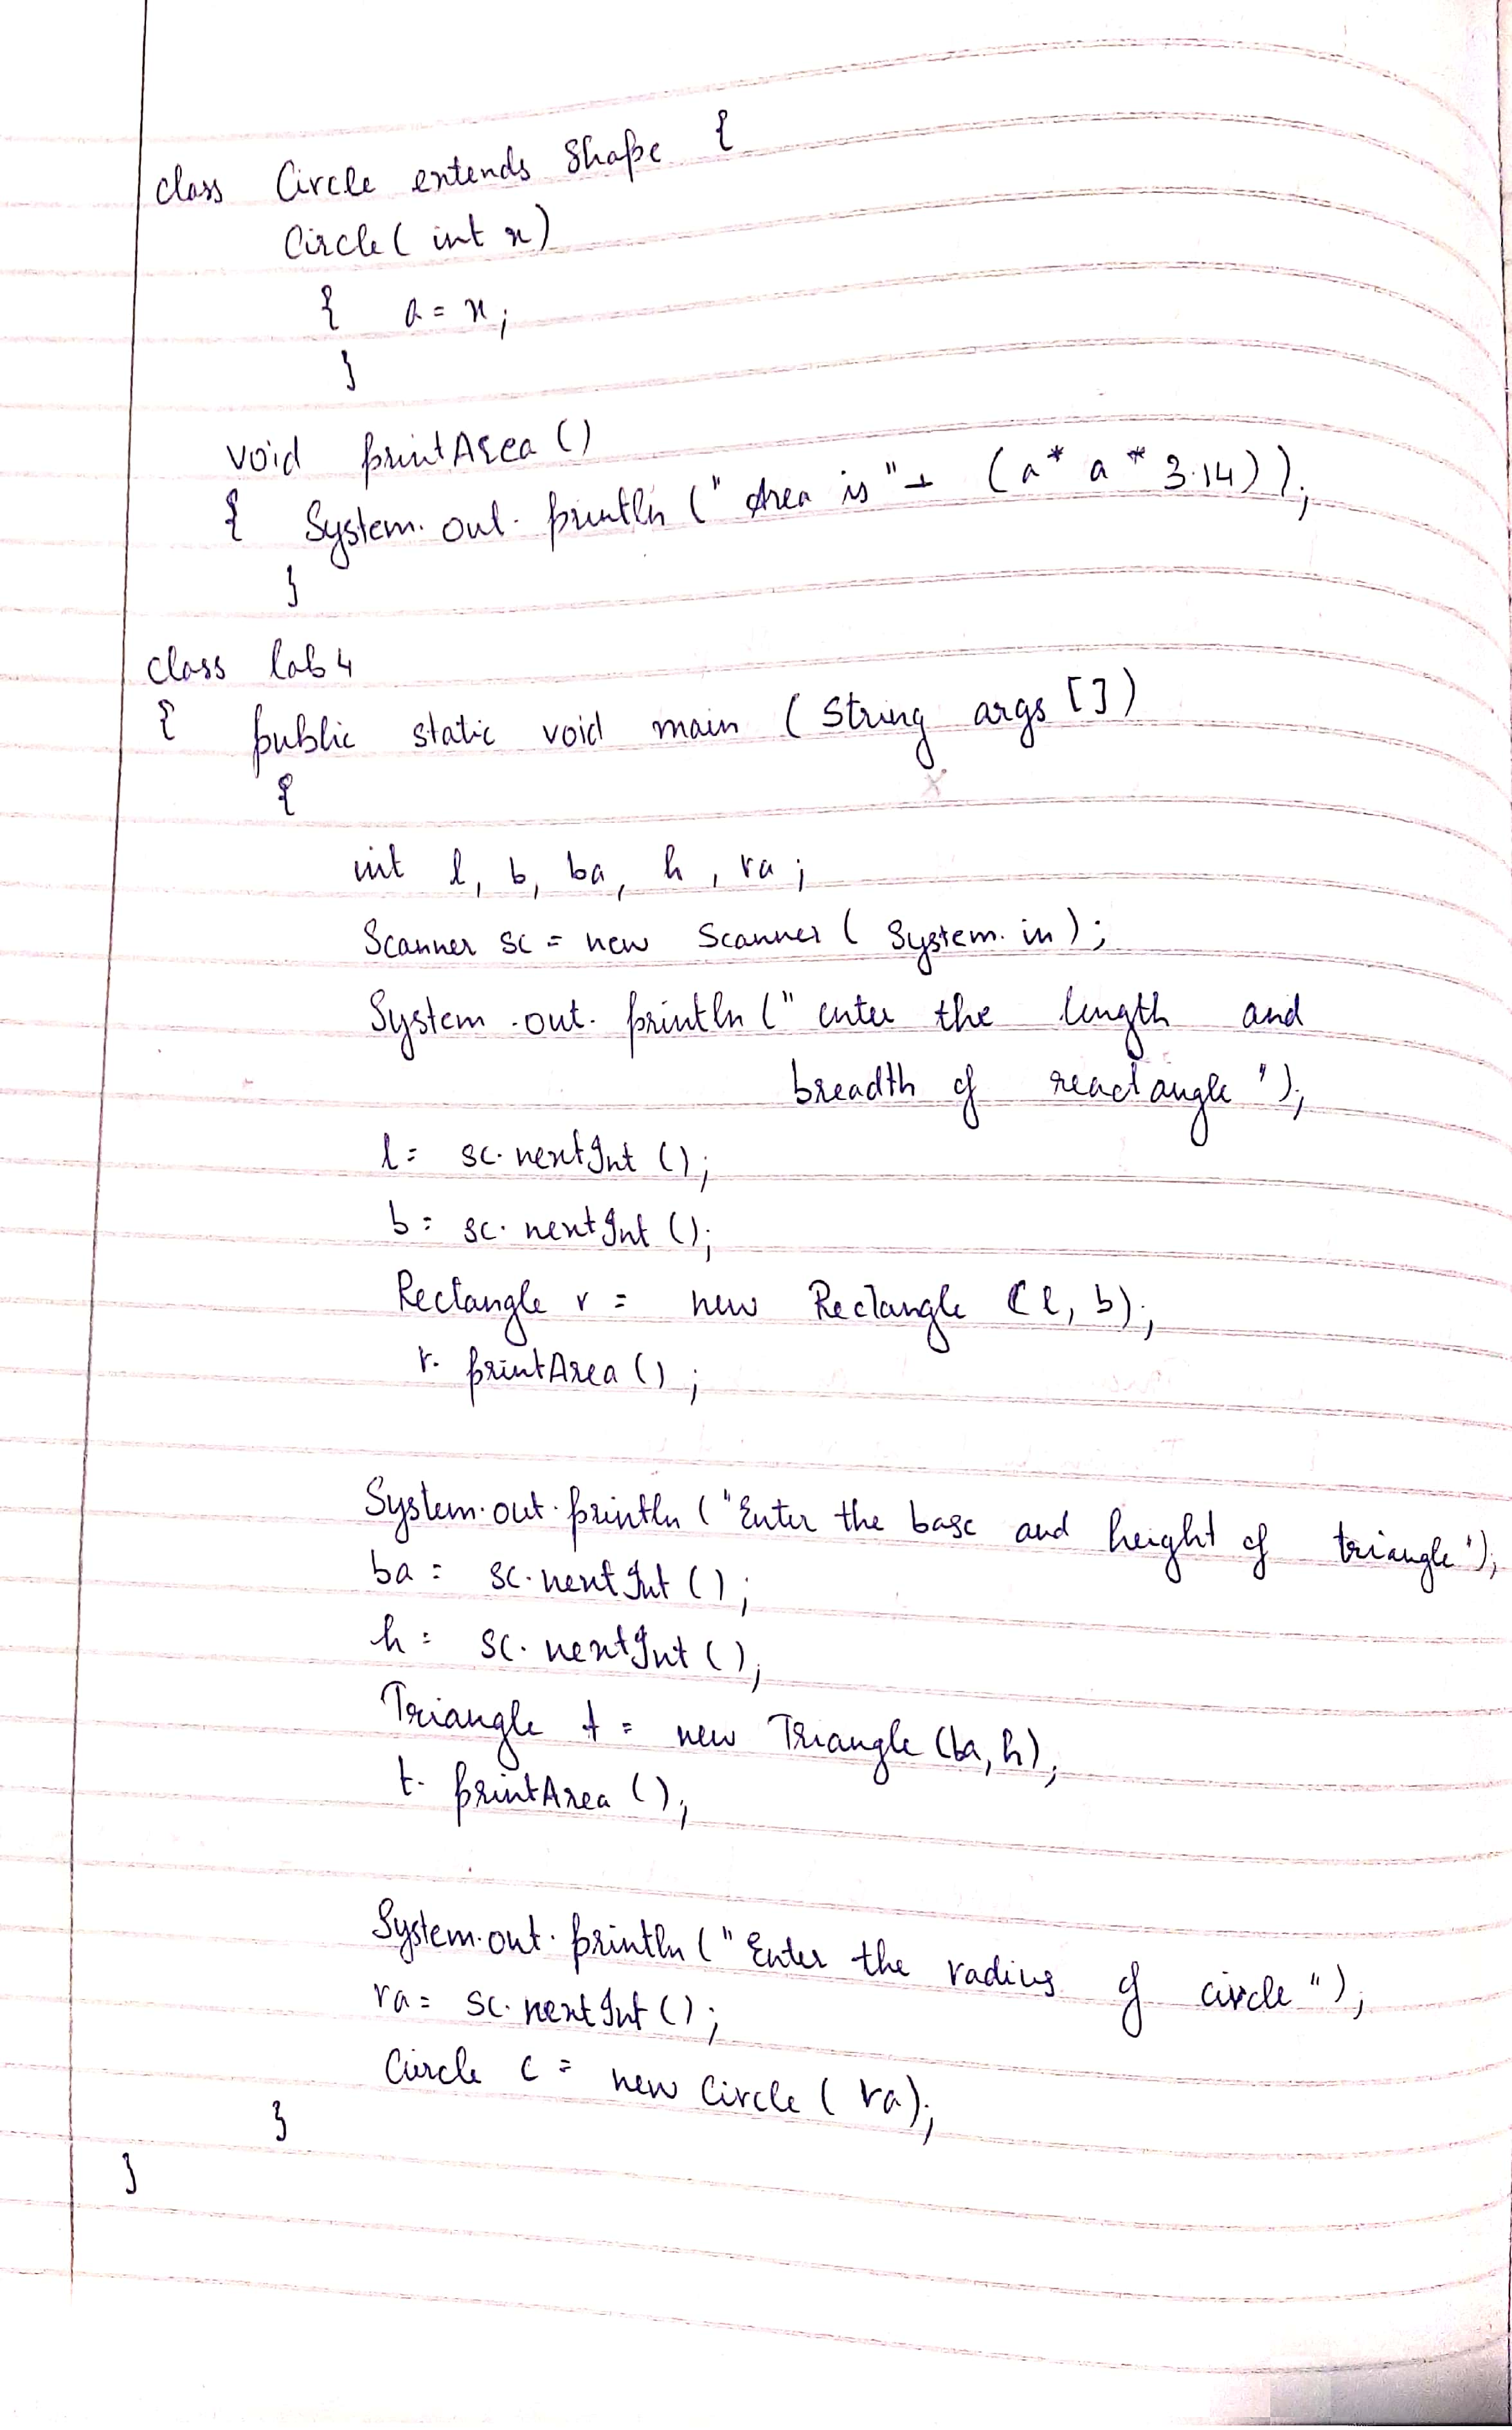 class Circle extends Shape {
Circle( int x)
{ a = x;
}
void printArea ()
{ System.out.println (" Area is "+ (a* a * 3.14));
}
class lab4
{ public static void main (String args [])
{
int l, b, ba, h, ra;
Scanner sc = new Scanner ( System.in);
System.out.println (" enter the length and
breadth of reactangle ");
l= sc.nextInt ();
b= sc.nextInt ();
Rectangle r = new Rectangle (l, b);
r. printArea ();
System.out.println ("Enter the base and height of triangle");
ba = sc.nextInt ();
h = sc.nextInt ();
Triangle t = new Triangle (ba, h);
t. printArea ();
System.out.println (" Enter the radius of circle ");
ra = sc.nextInt ();
Circle c = new Circle ( ra);
}
}